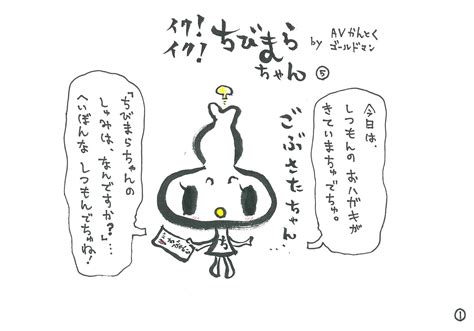 イク!イク!
ちびまらちゃん⑤
by AVかんとくゴールドマン
ごぶさたちゃん…
今日は、
しつもんのおハガキが
きていまちゅでちゅ。
「ちびまらちゃんの
しゅみは、なんですか?」…
へいぼんなしつもんでちゅね!
ち
①